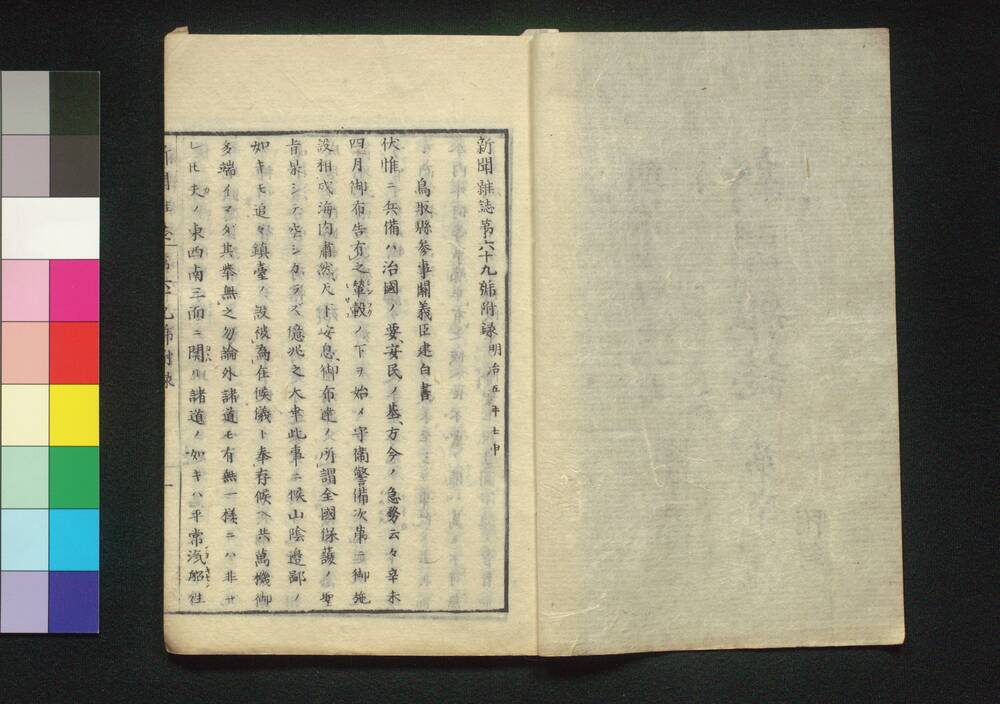 新聞雜誌第六十九號附録明治五年壬申
鳥取縣參事關義臣建白書
伏惟ニ兵備ハ治國ノ要安民ノ基方今ノ急務云々辛未
四月御布告有之輦轂ノ下ヲ始メ守備警備次第ニ御施
設相成海内肅然天下安息御布達ノ所謂全國保護ノ聖
旨果シテ空シカラズ億兆之大幸此事ニ候山陰邊鄙ノ
如キモ追々鎮臺ノ設被為在候儀ト奉存候ヘ共萬機御
多端イマダ其擧無之勿論外諸道モ有無一樣ニハ非サ
レヒ夫ノ東西南三面ニ関ル諸道ノ如キハ平常滊船往
新聞雜誌 第六十九號附録 一